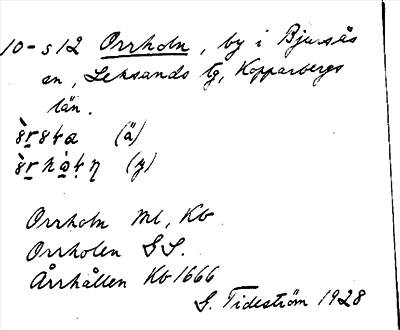 10-s12 Orrholn, by i Bjursås
sn, Leksands tg, Kopparbergs
län.
(ä)
(y)
Orrholn Ml, Kb
Orrholen GS.
Årrhållen Kb 1666
G. Tideström 1928